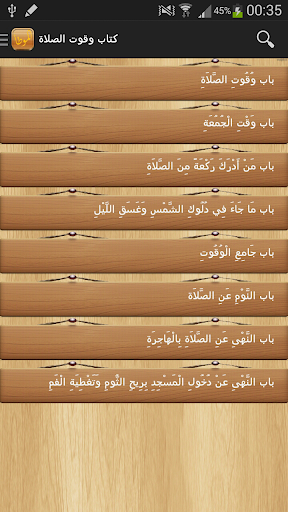 45% 00:35
كتاب وقوت الصلاة
موطأ
باب وُقُوتِ الصَّلَاةِ
باب وَقْتِ الْجُمُعَةِ
باب مَنْ أَدْرَكَ رَكْعَةً مِنَ الصَّلَاةِ
باب مَا جَاءَ فِي دُلُوكِ الشَّمْسِ وَغَسَقِ اللَّيْلِ
باب جَامِعِ الْوُقُوتِ
باب النَّوْمِ عَنِ الصَّلَاةِ
باب النَّهْيِ عَنِ الصَّلَاةِ بِالْهَاجِرَةِ
باب النَّهْيِ عَنْ دُخُولِ الْمَسْجِدِ بِرِيحِ الثُّومِ وَتَغْطِيَةِ الْفَمِ